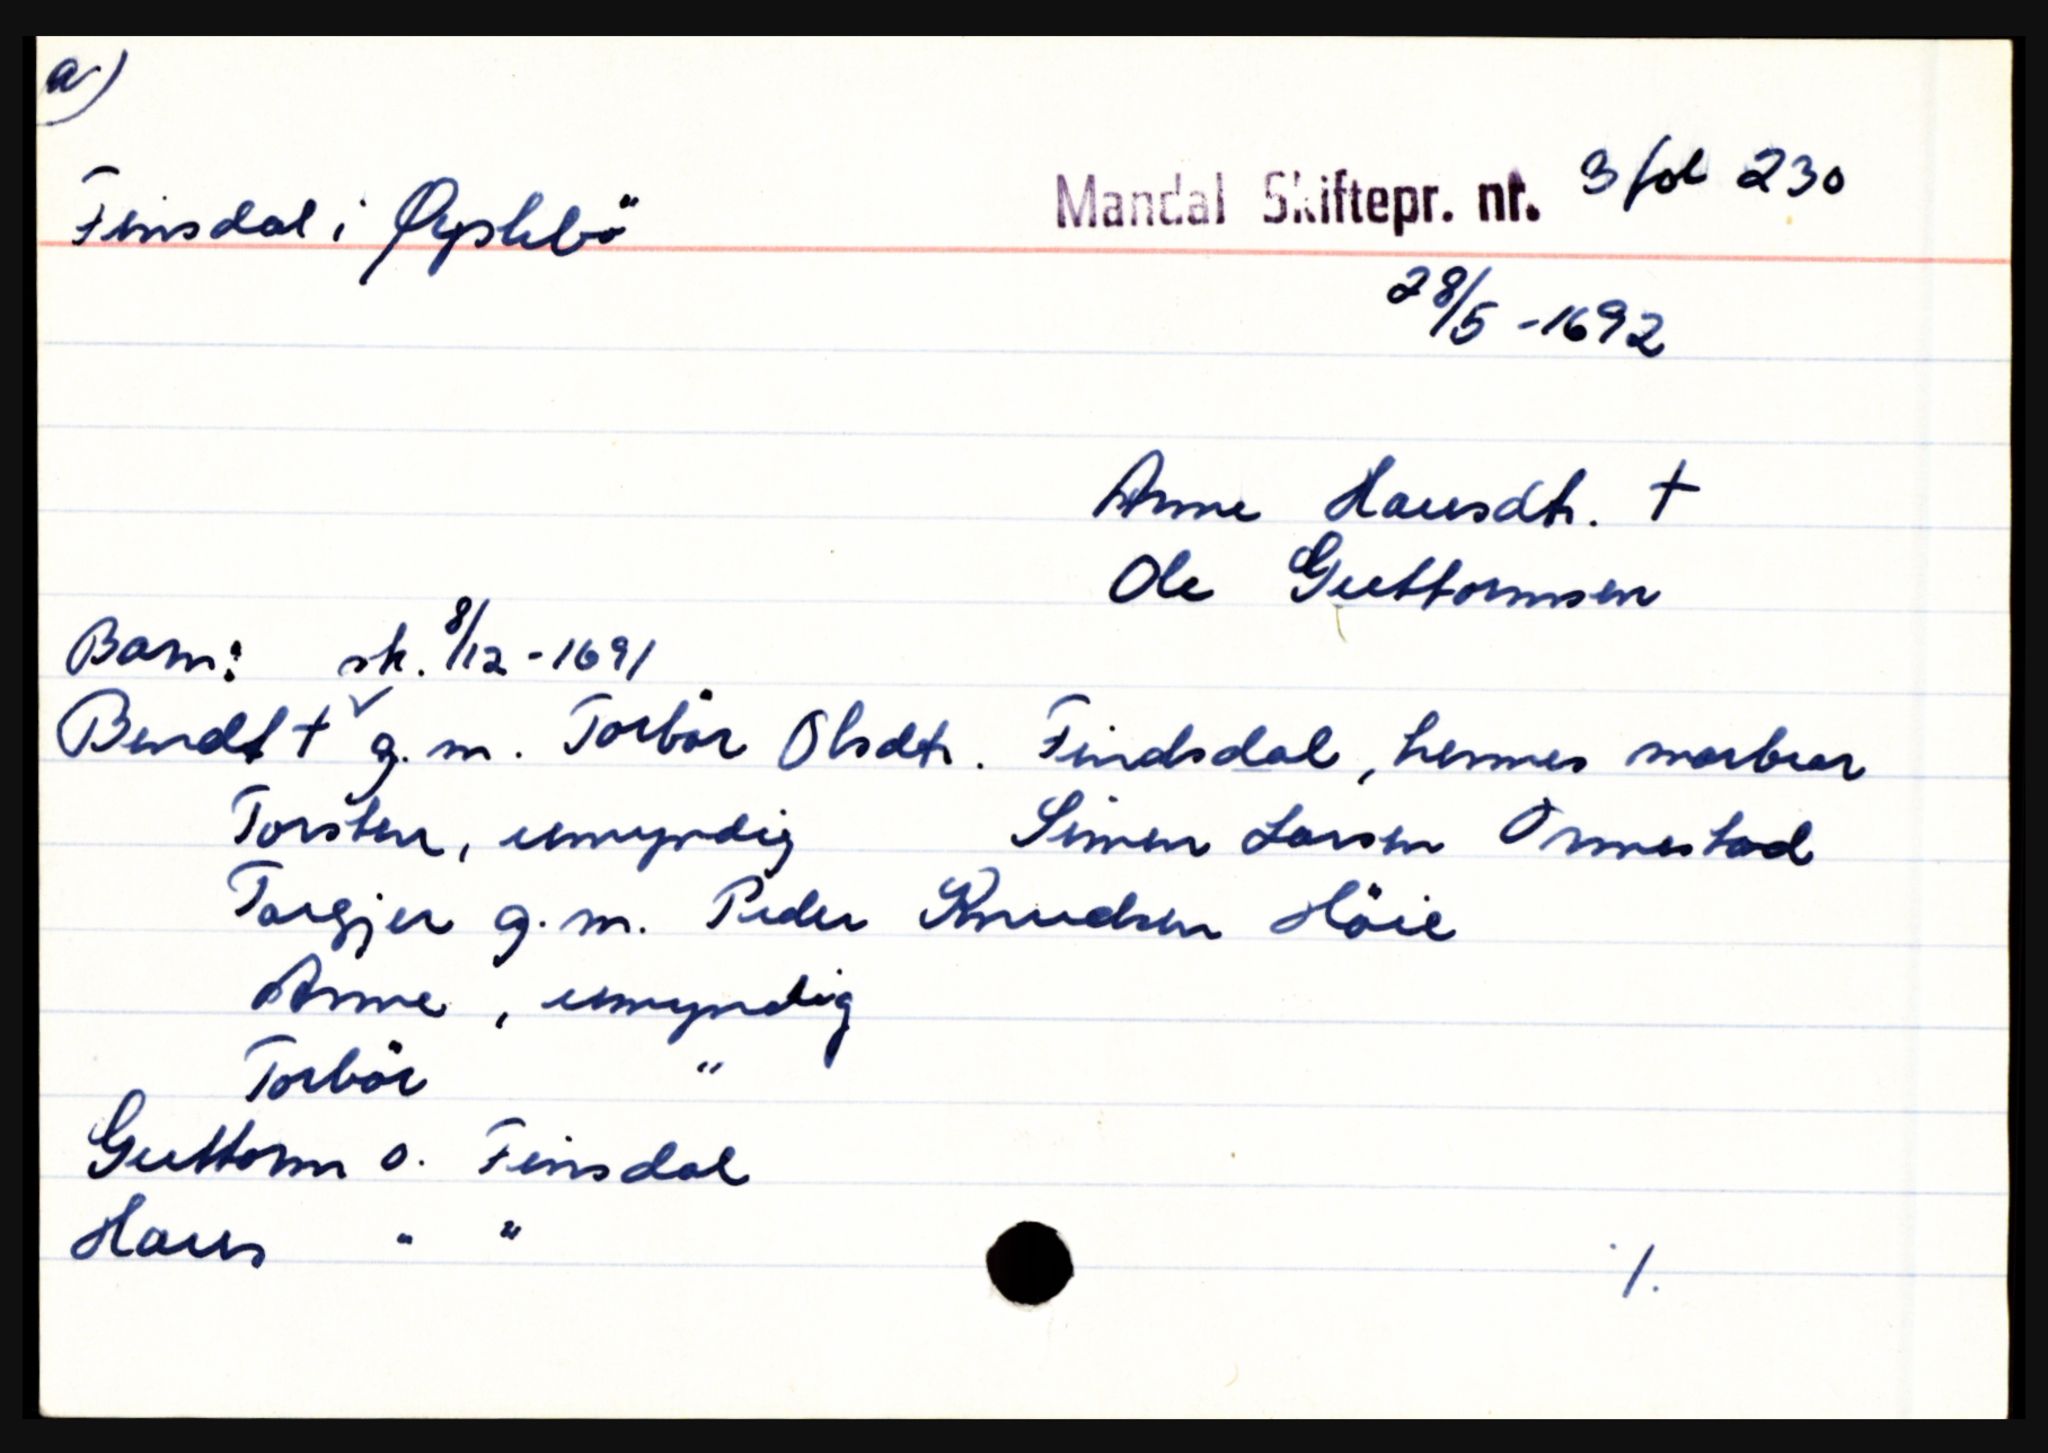 a)
Finsdal i Øyslebö Mandal Skiftepr. nr. 3 fol 230
28/5 - 1692
Anne Hansdtr. †
Ole Guttormsen
Barn: sk. 8/12 - 1691
Bendt † g. m. Torbör Olsdtr. Findsdal, hennes morbror
Torsten, umyndig Simen Larsen Ormestad
Torgjer g. m. Peder Knudsen Höie
Anne, umyndig
Torbör "
Guttorm O. Finsdal
Hans " "
1.